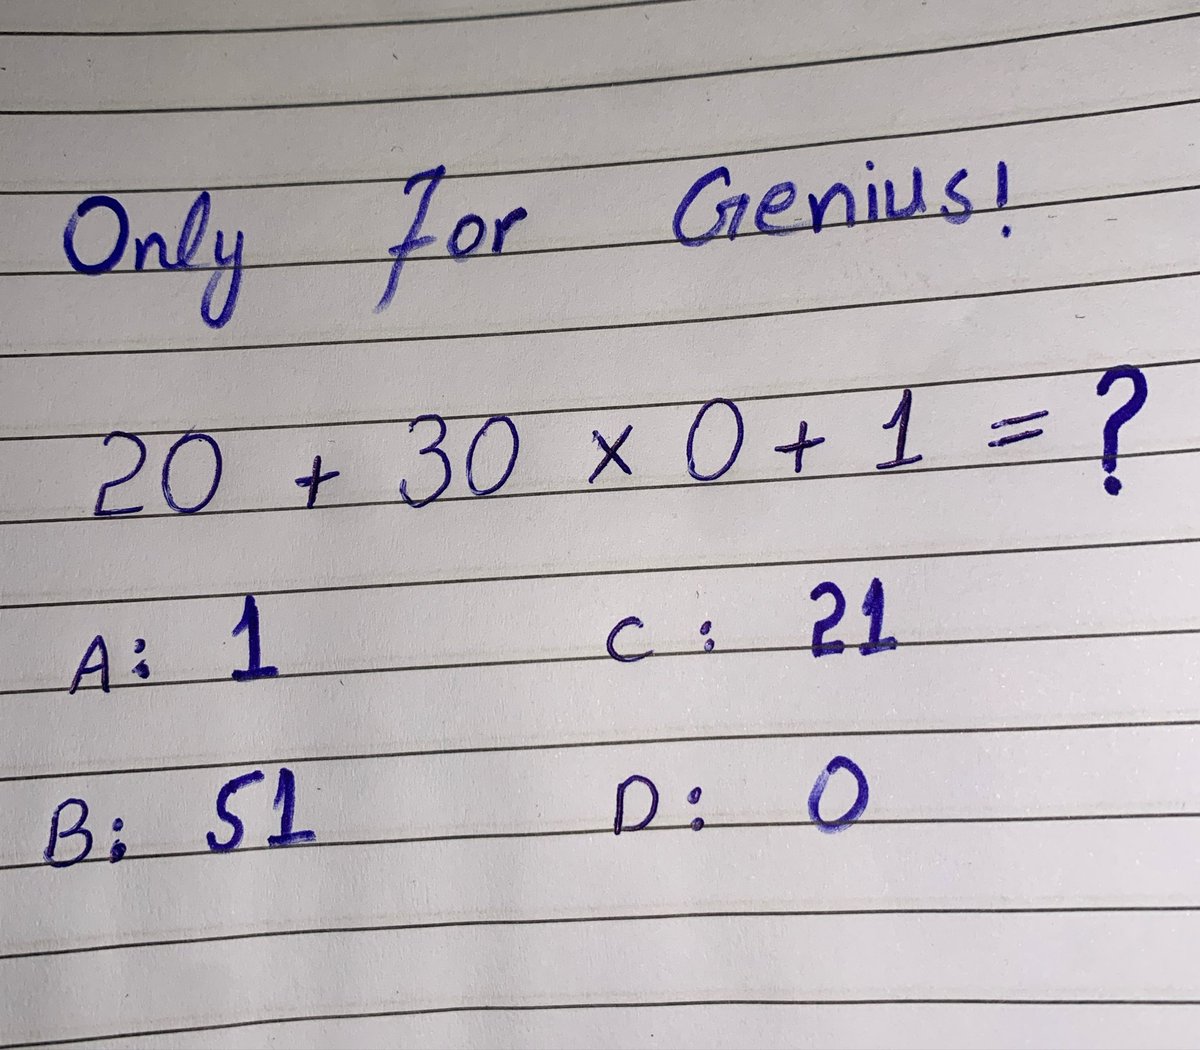 Only For Genius!
20 + 30 × 0 + 1 = ?
A: 1 C: 21
B: 51 D: 0